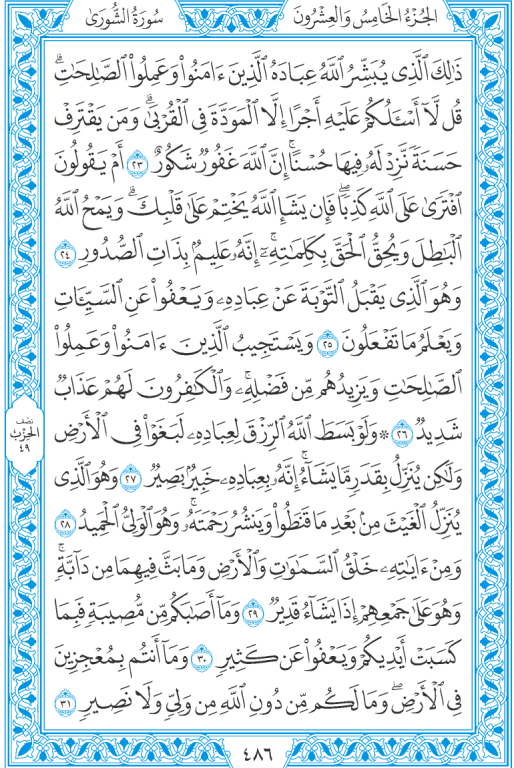 الجُزْءُ الخَامِسُ وَالعِشْرُونَ
سُورَةُ الشُّورَىٰ
ذَٰلِكَ ٱلَّذِى يُبَشِّرُ ٱللَّهُ عِبَادَهُ ٱلَّذِينَ ءَامَنُوا۟ وَعَمِلُوا۟ ٱلصَّٰلِحَٰتِۗ
قُل لَّآ أَسْـَٔلُكُمْ عَلَيْهِ أَجْرًا إِلَّا ٱلْمَوَدَّةَ فِى ٱلْقُرْبَىٰۗ وَمَن يَقْتَرِفْ
حَسَنَةً نَّزِدْ لَهُۥ فِيهَا حُسْنًاۚ إِنَّ ٱللَّهَ غَفُورٌ شَكُورٌ ٢٣ أَمْ يَقُولُونَ
ٱفْتَرَىٰ عَلَى ٱللَّهِ كَذِبًاۖ فَإِن يَشَإِ ٱللَّهُ يَخْتِمْ عَلَىٰ قَلْبِكَۗ وَيَمْحُ ٱللَّهُ
ٱلْبَٰطِلَ وَيُحِقُّ ٱلْحَقَّ بِكَلِمَٰتِهِۦٓۚ إِنَّهُۥ عَلِيمٌۢ بِذَاتِ ٱلصُّدُورِ ٢٤
وَهُوَ ٱلَّذِى يَقْبَلُ ٱلتَّوْبَةَ عَنْ عِبَادِهِۦ وَيَعْفُوا۟ عَنِ ٱلسَّيِّـَٔاتِ
وَيَعْلَمُ مَا تَفْعَلُونَ ٢٥ وَيَسْتَجِيبُ ٱلَّذِينَ ءَامَنُوا۟ وَعَمِلُوا۟
ٱلصَّٰلِحَٰتِ وَيَزِيدُهُم مِّن فَضْلِهِۦۚ وَٱلْكَٰفِرُونَ لَهُمْ عَذَابٌ
شَدِيدٌ ٢٦ ۞ وَلَوْ بَسَطَ ٱللَّهُ ٱلرِّزْقَ لِعِبَادِهِۦ لَبَغَوْا۟ فِى ٱلْأَرْضِ
وَلَٰكِن يُنَزِّلُ بِقَدَرٍ مَّا يَشَآءُۚ إِنَّهُۥ بِعِبَادِهِۦ خَبِيرٌۢ بَصِيرٌ ٢٧ وَهُوَ ٱلَّذِى
يُنَزِّلُ ٱلْغَيْثَ مِنۢ بَعْدِ مَا قَنَطُوا۟ وَيَنشُرُ رَحْمَتَهُۥۚ وَهُوَ ٱلْوَلِىُّ ٱلْحَمِيدُ ٢٨
وَمِنْ ءَايَٰتِهِۦ خَلْقُ ٱلسَّمَٰوَٰتِ وَٱلْأَرْضِ وَمَا بَثَّ فِيهِمَا مِن دَآبَّةٍۚ
وَهُوَ عَلَىٰ جَمْعِهِمْ إِذَا يَشَآءُ قَدِيرٌ ٢٩ وَمَآ أَصَٰبَكُم مِّن مُّصِيبَةٍ فَبِمَا
كَسَبَتْ أَيْدِيكُمْ وَيَعْفُوا۟ عَن كَثِيرٍ ٣٠ وَمَآ أَنتُم بِمُعْجِزِينَ
فِى ٱلْأَرْضِۖ وَمَا لَكُم مِّن دُونِ ٱللَّهِ مِن وَلِىٍّ وَلَا نَصِيرٍ ٣١
نصف
الحزب
٤٩
٤٨٦